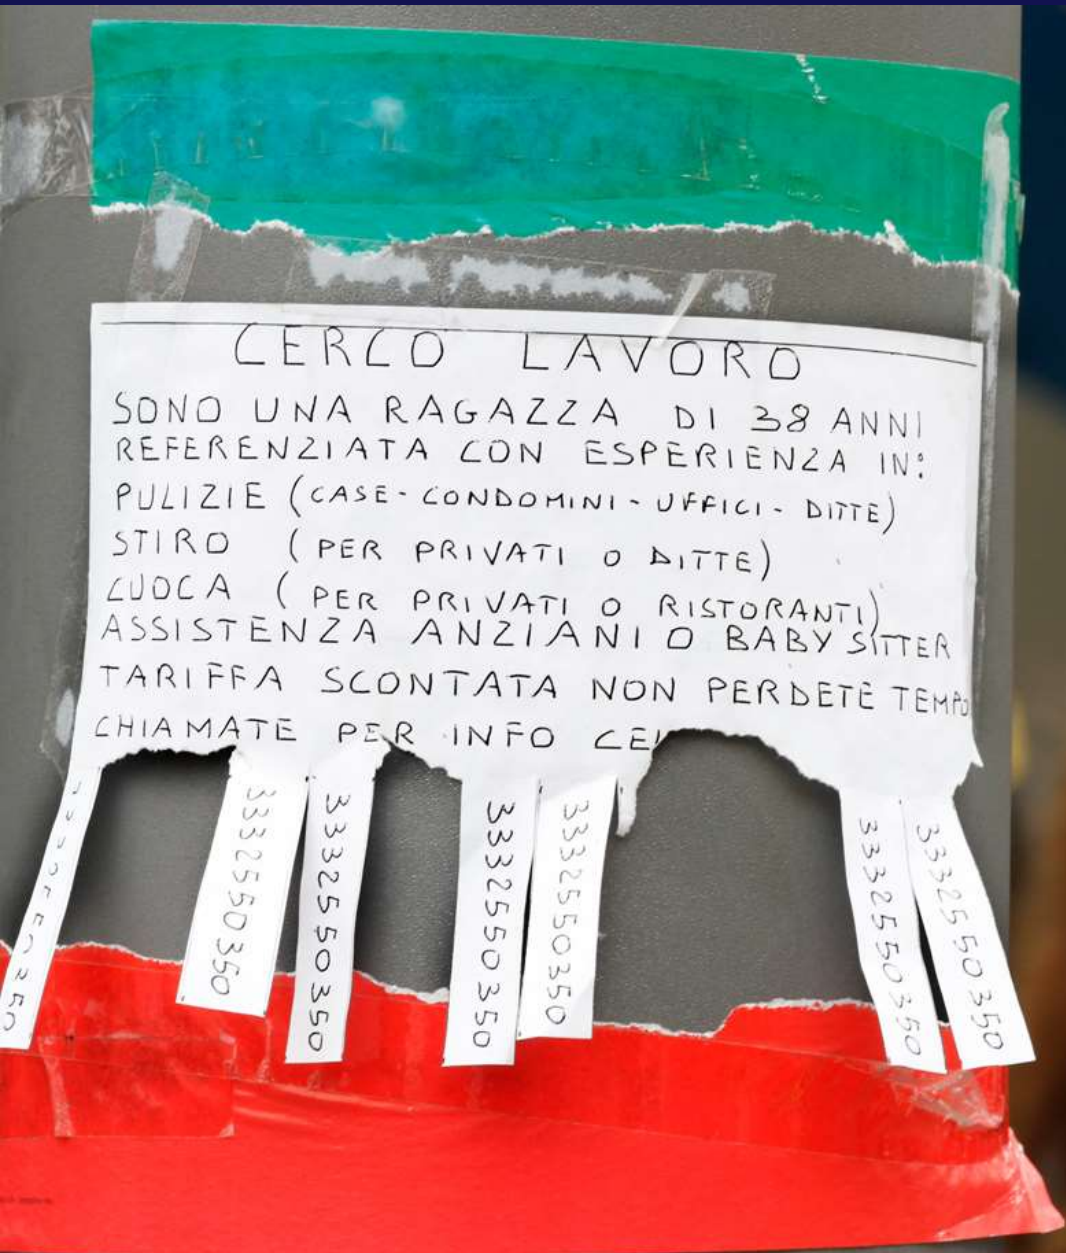 CERCO LAVORO
SONO UNA RAGAZZA DI 38 ANNI
REFERENZIATA CON ESPERIENZA IN:
PULIZIE (CASE - CONDOMINI - UFFICI - DITTE)
STIRO (PER PRIVATI O DITTE)
CUOCA (PER PRIVATI O RISTORANTI)
ASSISTENZA ANZIANI O BABY SITTER
TARIFFA SCONTATA NON PERDETE TEMPO
CHIAMATE PER INFO
3332550350
3332550350
3332550350
3332550350
3332550350
3332550350